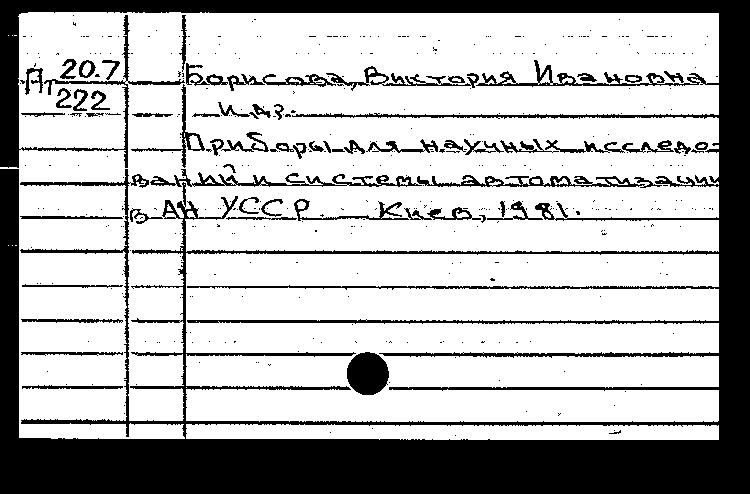 Пт 20.7
222
Борисова, Виктория Ивановна
и др.
Приборы для научных исследо-
ваний и системы автоматизации
в АН УССР Киев, 1981.